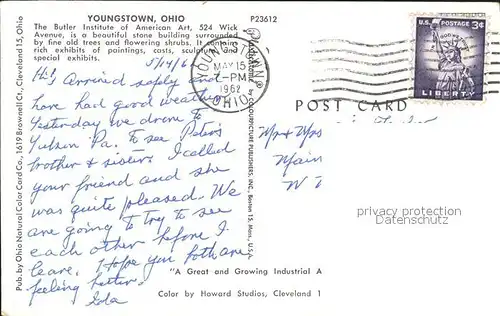 YOUNGSTOWN, OHIO P23612
The Butler Institute of American Art, 524 Wick
Avenue, is a beautiful stone building surrounded
by fine old trees and flowering shrubs. It contains
rich exhibits of paintings, casts, sculpture and
special exhibits.
5/14/62
Hi! Arrived safely and
have had good weather.
Yesterday we drove to
Pa. to see Peter's
brother & sisters. I called
your friend and she
was quite pleased. We
are going to try to see
each other before I
leave. Hope you both are
feeling better.
Lola
Pub. by Ohio Natural Color Card Co., 1619 Brownell Ct., Cleveland 15, Ohio
PICTURE PUBLISHERS, INC., Boston 15, Mass., U.S.A.
YOUNGSTOWN
MAY 15
7-PM
1962
OHIO
U.S. POSTAGE 3¢
IN GOD WE TRUST
LIBERTY
POST CARD
Mr & Mrs
Main
W
privacy protection
DELCAMPE
"A Great and Growing Industrial A
Color by Howard Studios, Cleveland 1